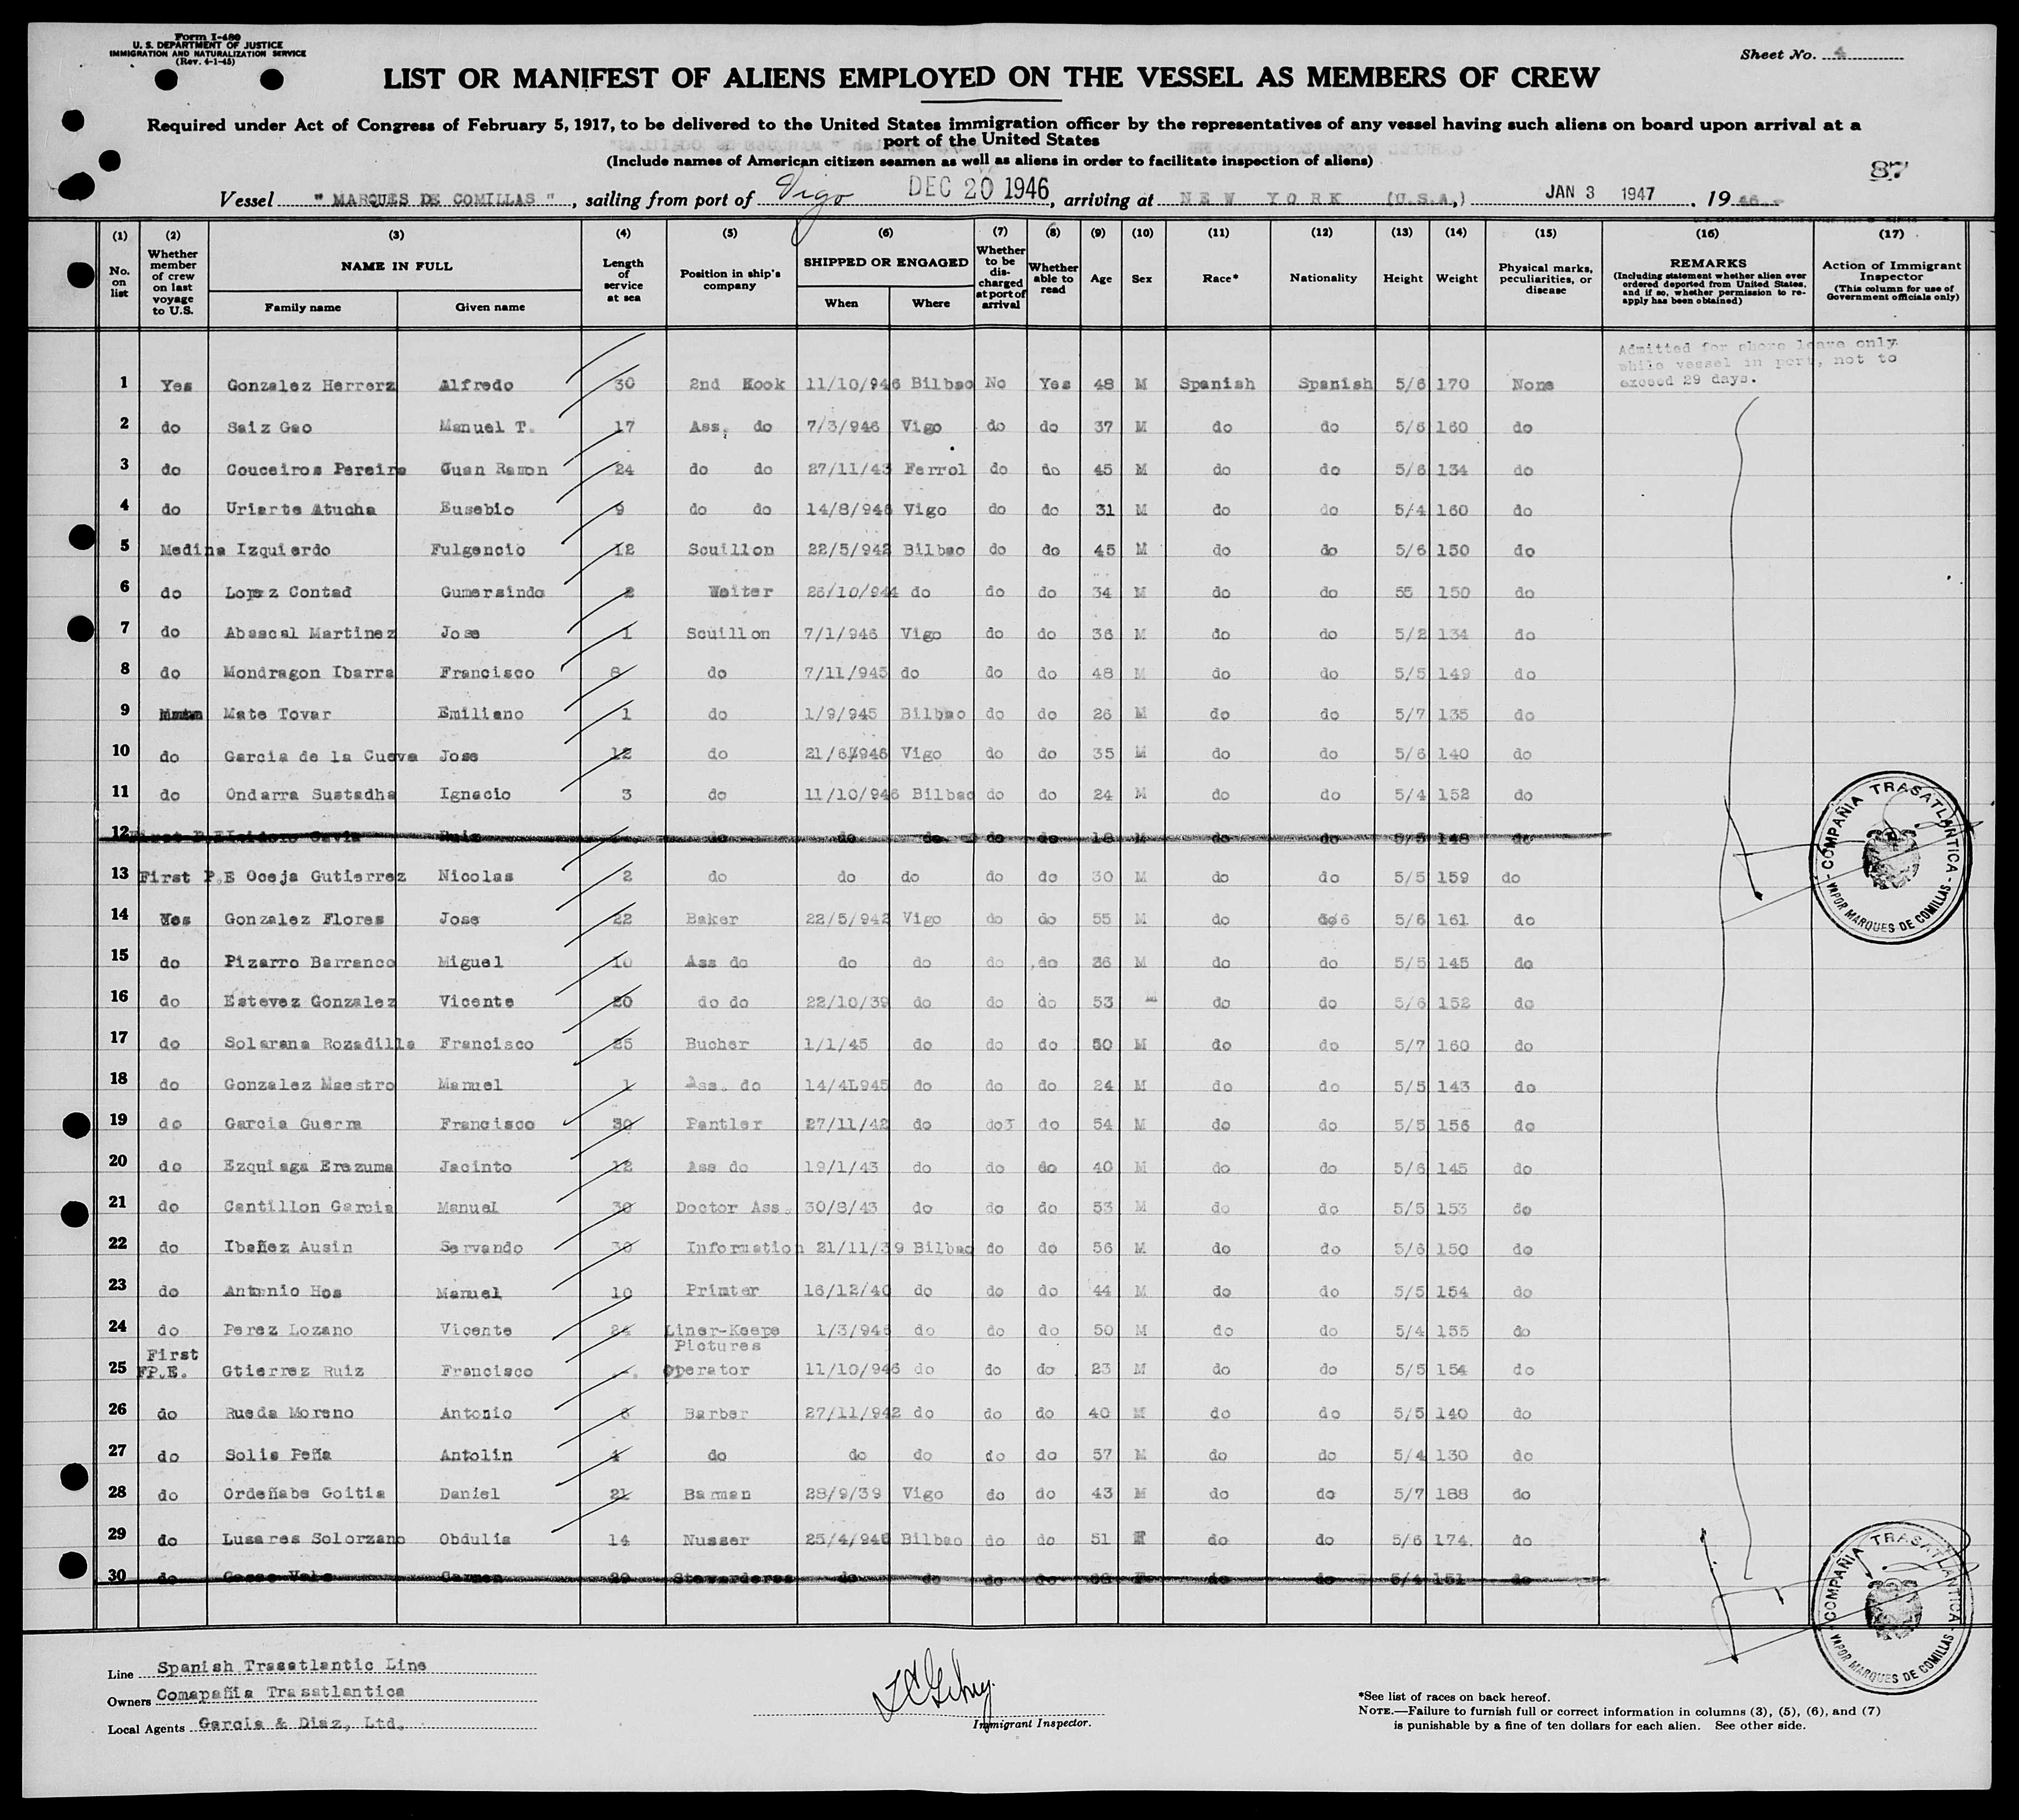 Form I-480
U. S. DEPARTMENT OF JUSTICE
IMMIGRATION AND NATURALIZATION SERVICE
(Rev. 4-1-45)
Sheet No. 4
LIST OR MANIFEST OF ALIENS EMPLOYED ON THE VESSEL AS MEMBERS OF CREW
Required under Act of Congress of February 5, 1917, to be delivered to the United States immigration officer by the representatives of any vessel having such aliens on board upon arrival at a
port of the United States
(Include names of American citizen seamen as well as aliens in order to facilitate inspection of aliens)
87
Vessel " MARQUES DE COMILLAS ", sailing from port of Vigo DEC 20 1946, arriving at NEW YORK (U.S.A.,) JAN 3 1947, 19 46.-
(1) (2) (3) (4) (5) (6) (7) (8) (9) (10) (11) (12) (13) (14) (15) (16) (17)
No. on list
Whether member of crew on last voyage to U.S.
NAME IN FULL
Family name Given name
Length of service at sea
Position in ship's company
SHIPPED OR ENGAGED
When Where
Whether to be discharged at port of arrival
Whether able to read
Age Sex Race* Nationality Height Weight
Physical marks, peculiarities, or disease
REMARKS
(Including statement whether alien ever ordered deported from United States, and if so, whether permission to re-apply has been obtained)
Action of Immigrant Inspector
(This column for use of Government officials only)
Admitted for shore leave only
while vessel in port, not to
exceed 29 days.
1 Yes Gonzalez Herrerz Alfredo 30 2nd Kook 11/10/946 Bilbao No Yes 48 M Spanish Spanish 5/6 170 None
2 do Saiz Gao Manuel T. 17 Ass, do 7/3/946 Vigo do do 37 M do do 5/6 160 do
3 do Couceiros Pereira Guan Ramon 24 do do 27/11/43 Ferrol do do 45 M do do 5/6 134 do
4 do Uriarte Atucha Eusebio 9 do do 14/8/946 Vigo do do 31 M do do 5/4 160 do
5 Medina Izquierdo Fulgencio 12 Scuillon 22/5/942 Bilbao do do 45 M do do 5/6 150 do
6 do Lopez Contad Gumersindo 2 Waiter 26/10/944 do do do 34 M do do 55 150 do
7 do Abascal Martinez Jose 1 Scuillon 7/1/946 Vigo do do 36 M do do 5/2 134 do
8 do Mondragon Ibarra Francisco 8 do 7/11/945 do do do 48 M do do 5/5 149 do
9 Mate Tovar Emiliano 1 do 1/9/945 Bilbao do do 26 M do do 5/7 135 do
10 do Garcia de la Cueva Jose 12 do 21/6/946 Vigo do do 35 M do do 5/6 140 do
11 do Ondarra Sustadha Ignacio 3 do 11/10/946 Bilbao do do 24 M do do 5/4 152 do
12 First P.E Isidoro Gavia Ruiz do do do do do 18 M do do 5/5 148 do
13 First P.E Oceja Gutierrez Nicolas 2 do do do do do 30 M do do 5/5 159 do
14 Yes Gonzalez Flores Jose 22 Baker 22/5/942 Vigo do do 55 M do do 5/6 161 do
15 do Pizarro Barranco Miguel 10 Ass do do do do do 36 M do do 5/5 145 do
16 do Estevez Gonzalez Vicente 20 do do 22/10/39 do do do 53 M do do 5/6 152 do
17 do Solarana Rozadilla Francisco 25 Bucher 1/1/45 do do do 50 M do do 5/7 160 do
18 do Gonzalez Maestro Manuel 1 Ass. do 14/4L945 do do do 24 M do do 5/5 143 do
19 do Garcia Guerra Francisco 30 Pantler 27/11/42 do do do 54 M do do 5/5 156 do
20 do Ezquiaga Erezuma Jacinto 12 Ass do 19/1/43 do do do 40 M do do 5/6 145 do
21 do Cantillon Garcia Manuel 30 Doctor Ass. 30/8/43 do do do 53 M do do 5/5 153 do
22 do Ibañez Ausin Servando 30 Information 21/11/39 Bilbao do do 56 M do do 5/6 150 do
23 do Antonio Hos Manuel 10 Printer 16/12/40 do do do 44 M do do 5/5 154 do
24 do Perez Lozano Vicente 24 Liner-Keepe 1/3/946 do do do 50 M do do 5/4 155 do
First Pictures
25 FP.E. Gtierrez Ruiz Francisco -. Operator 11/10/946 do do do 23 M do do 5/5 154 do
26 do Rueda Moreno Antonio 6 Barber 27/11/942 do do do 40 M do do 5/5 140 do
27 do Solis Peña Antolin 4 do do do do do 57 M do do 5/4 130 do
28 do Ordeñabe Goitia Daniel 21 Barman 28/9/39 Vigo do do 43 M do do 5/7 188 do
29 do Lusares Solorzano Obdulia 14 Nusser 25/4/946 Bilbao do do 51 F do do 5/6 174. do
30 do Carmen 20 Stewarderes do do do do F do do 5/4 151 do
COMPAÑIA TRASATLANTICA - VAPOR MARQUES DE COMILLAS -
COMPAÑIA TRASATLANTICA - VAPOR MARQUES DE COMILLAS -
Line Spanish Trasatlantic Line
Owners Comapañia Trasatlantica
Local Agents Garcia & Diaz, Ltd.
Immigrant Inspector.
*See list of races on back hereof.
NOTE.—Failure to furnish full or correct information in columns (3), (5), (6), and (7)
is punishable by a fine of ten dollars for each alien. See other side.